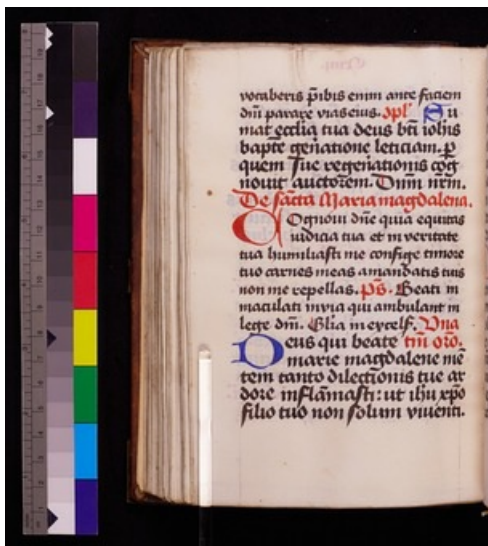 vocaberis p̄ibis enim ante faciem
dn̄i parare vias eius. 9pl̄ Su
mat ecclīa tua deus bt̄i ioh̄is
bapt̄e gen̄atione leticiam. p̱
quem sue regen̄ationis cog
nouit auctorem. Dnm̄ nr̄m.
De sācta Maria magdalena.
Cognoui dn̄e quia equitas
iudicia tua et in veritate
tua humiliasti me confige timore
tuo carnes meas a mandatis tuis
non me repellas. ps̄. Beati in
maculati in via qui ambulant in
lege dn̄i. Glia in excels̄. Vna
Deus qui beate tm̄ oro.
marie magdalene mē
tem tanto dilectionis tue ar
dore inflāmasti: ut ih̄u xp̄o
filio tuo non solum viuenti.